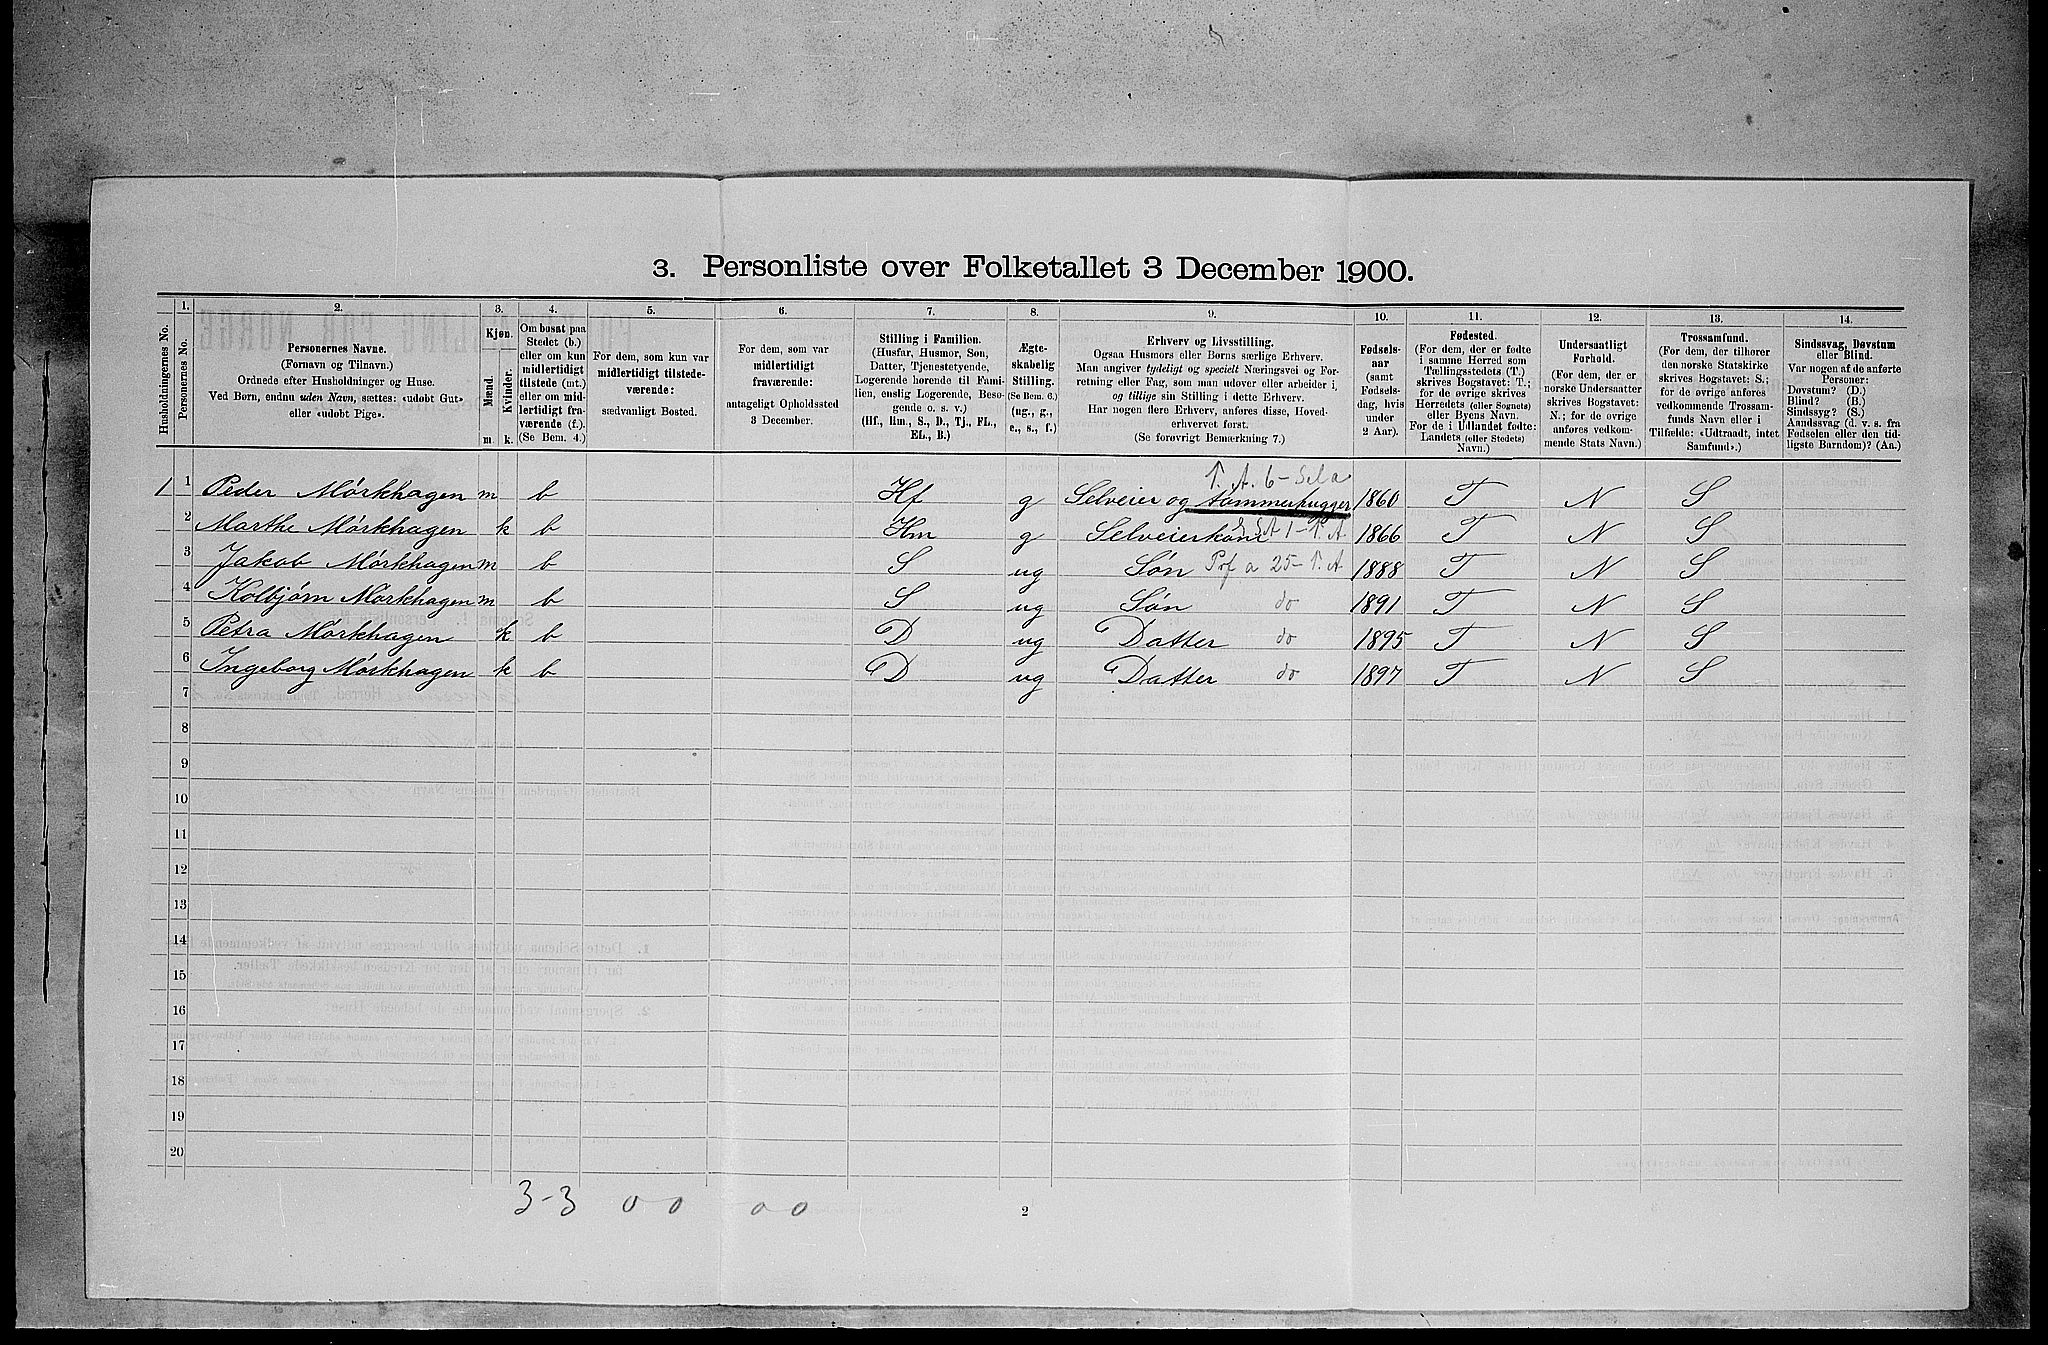 3. Personliste over Folketallet 3 December 1900.
1. 2. 3. 4. 5. 6. 7. 8. 9. 10. 11. 12. 13. 14.
Husholdningernes No.
Personernes No.
Personernes Navne.
(Fornavn og Tilnavn).
Ordnede efter Husholdninger og Huse.
Ved Børn, endnu uden Navn, sættes: «udøbt Gut»
eller «udøbt Pige».
Kjøn.
Mænd.
Kvinder.
m. k.
Om bosat paa
Stedet (b.)
eller om kun
midlertidigt
tilstede (mt.)
eller om mid-
lertidigt fra-
værende (f.).
(Se Bem. 4.)
For dem, som kun var
midlertidigt tilstede-
værende:
sædvanligt Bosted.
For dem, som var
midlertidigt
fraværende:
antageligt Opholdssted
3 December.
Stilling i Familien.
(Husfar, Husmor, Søn,
Datter, Tjenestetyende,
Logerende hørende til Fami-
lien, enslig Logerende, Besø-
gende o. s. v.)
(Hf., Hm., S., D., Tj., FL.,
EL., B.)
Ægte-
skabelig
Stilling.
(Se Bem. 6.)
(ug., g.,
e., s., f.)
Erhverv og Livsstilling.
Ogsaa Husmors eller Børns særlige Erhverv.
Man angiver tydeligt og specielt Næringsvei og For-
retning eller Fag, som man udover eller arbeider i,
og tillige sin Stilling i dette Erhverv.
Har nogen flere Erhverv, anføres disse, Hoved-
erhvervet først.
(Se forøvrigt Bemærkning 7.)
Fødsels-
aar
(samt
Fødsels-
dag, hvis
under
2 Aar).
Fødested.
(For dem, der er fødte
i samme Herred som
Tællingsstedets (T.)
skrives Bogstavet: T.;
for de øvrige skrives
Herredets (eller Sognets)
eller Byens Navn.
For de i Udlandet fødte:
Landets (eller Stedets)
Navn.)
Undersaatligt
Forhold.
(For dem, der er
norske Undersaatter
skrives Bogstavet:
N.; for de øvrige
anføres vedkom-
mende Stats Navn.)
Trossamfund.
(For dem, der tilhører
den norske Statskirke
skrives Bogstavet: S.;
for de øvrige anføres
vedkommende Trossam-
funds Navn eller i
Tilfælde: «Udtraadt, intet
Samfund».)
Sindssvag, Døvstum
eller Blind.
Var nogen af de anførte
Personer:
Døvstum? (D.)
Blind? (B.)
Sindssyg? (S.)
Aandssvag (d. v. s. fra
Fødselen eller den tid-
ligste Barndom)? (Aa.)
1 1 Peder Mørkhagen m b Hf g Selveier og tømmerhugger 1860 T N S
2 Marthe Mørkhagen k b Hm g Selveierkone 1866 T N S
3 Jakob Mørkhagen m b S ug Søn 1888 T N S
4 Kolbjørn Mørkhagen m b S ug Søn do 1891 T N S
5 Petra Mørkhagen k b D ug Datter do 1895 T N S
6 Ingeborg Mørkhagen k b D ug Datter do 1897 T N S
7
8
9
10
11
12
13
14
15
16
17
18
19
20
3-3 00 00
2